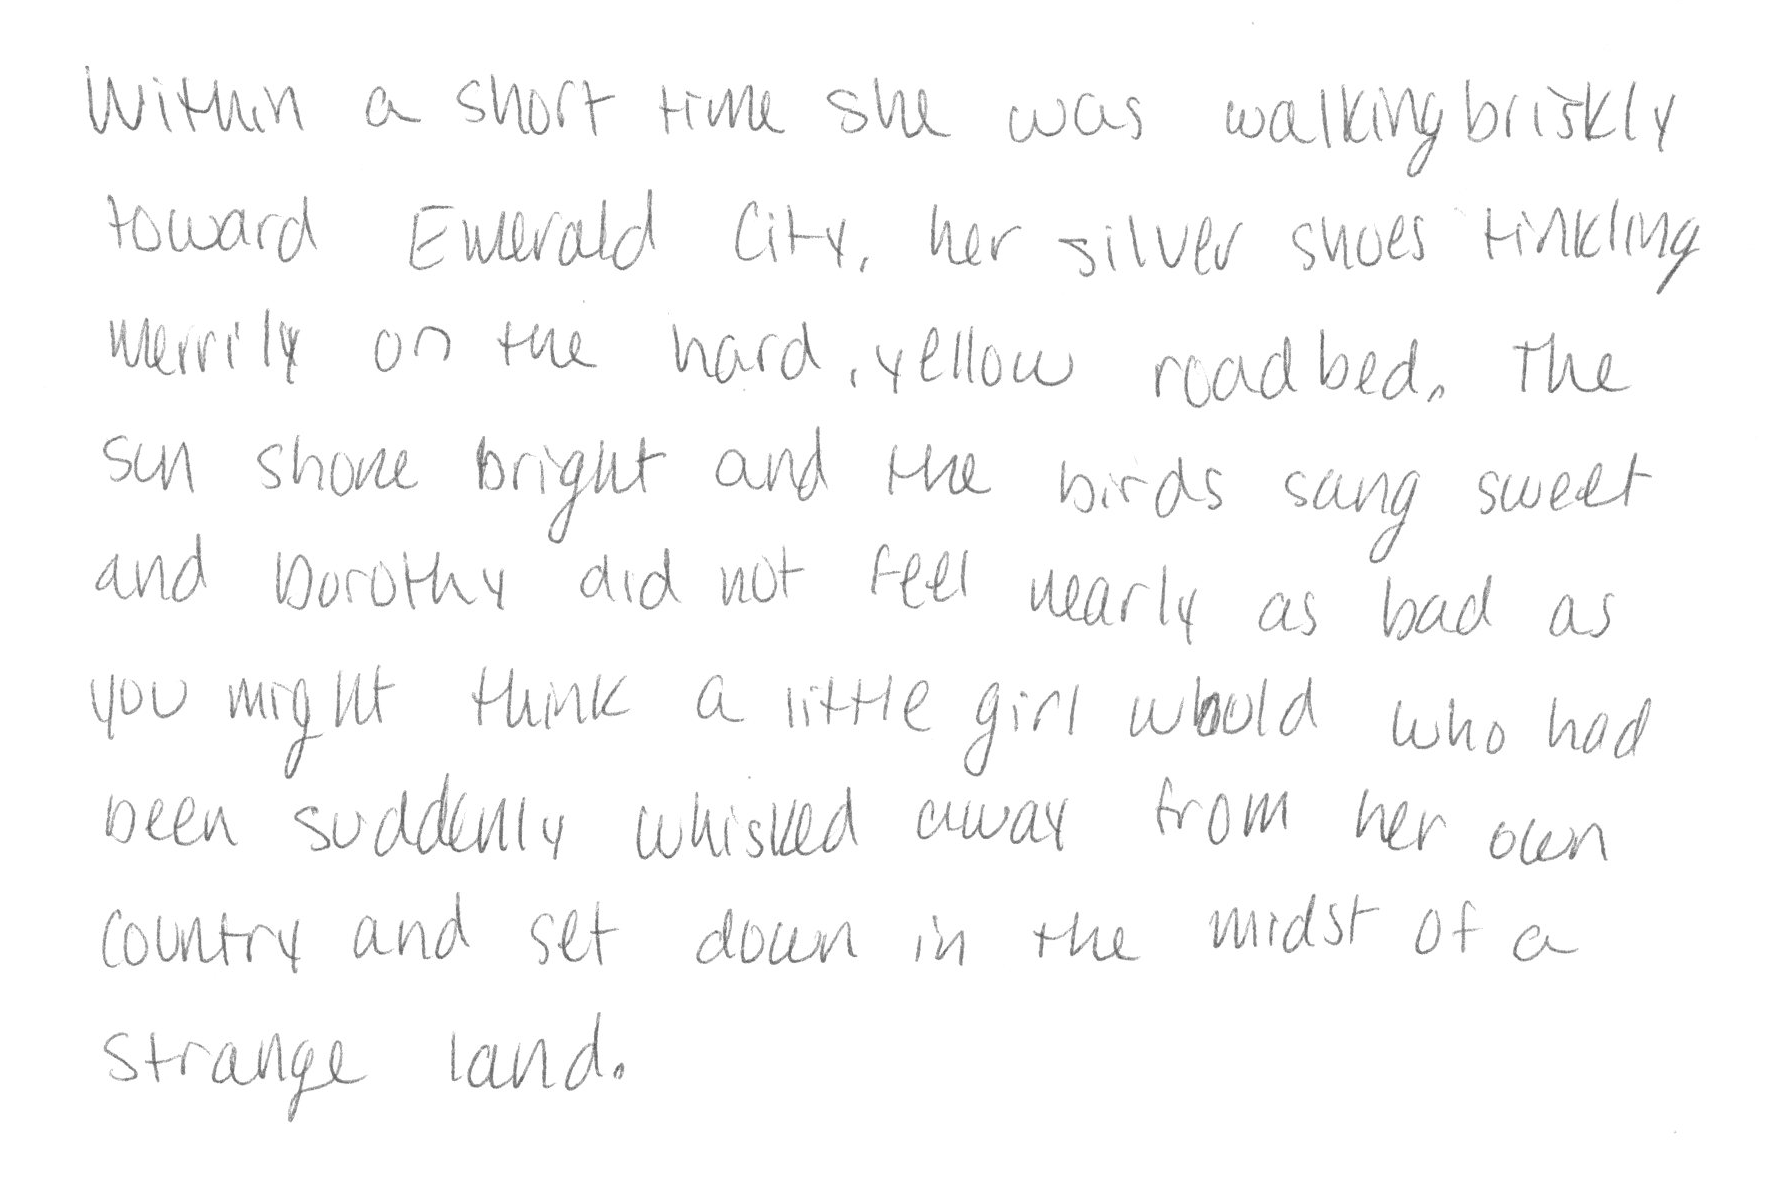 Within a short time she was walking briskly
toward Emerald City, her silver shoes tinkling
merrily on the hard, yellow roadbed. The
sun shone bright and the birds sang sweet
and Dorothy did not feel nearly as bad as
you might think a little girl would who had
been suddenly whisked away from her own
country and set down in the midst of a
strange land.